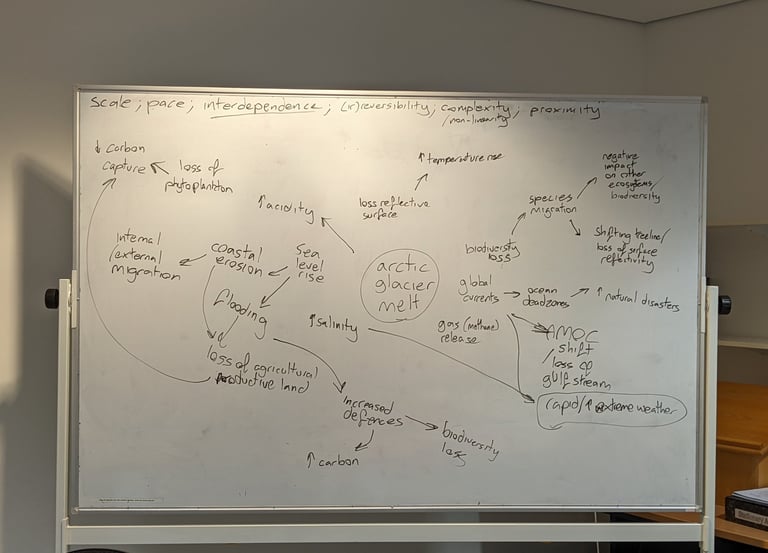 Scale ; pace ; interdependence ; (ir)reversibility ; complexity ; proximity
/non-linearity
↓ Carbon
capture
loss of
phytoplankton
↑ acidity
loss reflective
surface
↑ temperature rise
species
migration
negative
impact
on other
ecosystems/
biodiversity
shifting treeline/
loss of surface
reflectivity
biodiversity
loss
internal
/external
migration
coastal
erosion
Sea
level
rise
flooding
arctic
glacier
melt
global
currents
ocean
deadzones
↑ natural disasters
↑ salinity
gas (methane)
release
AMOC
shift
/ loss of
gulf stream
rapid/↑ extreme weather
loss of agricultural
productive land
increased
defences
biodiversity
loss
↑ carbon